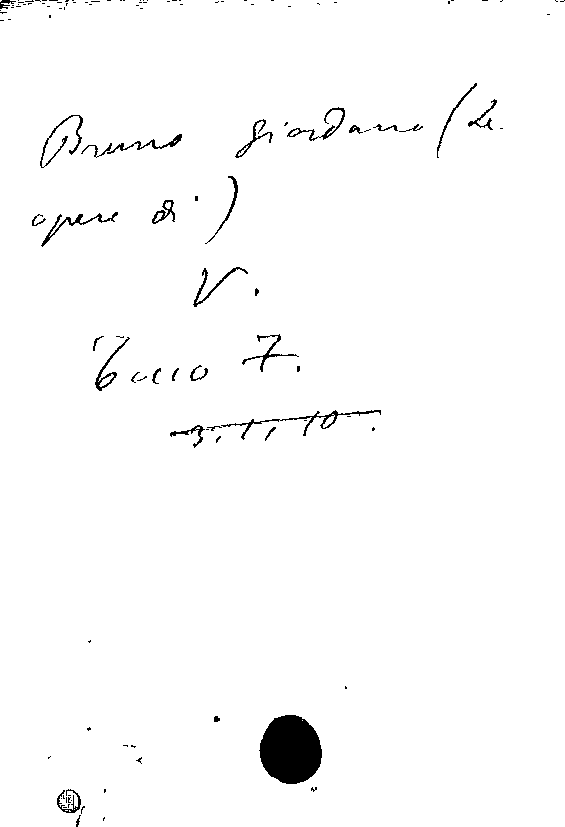 Bruno Giordano (Le
opere di)
V.
Tocco F.
3.1.10.